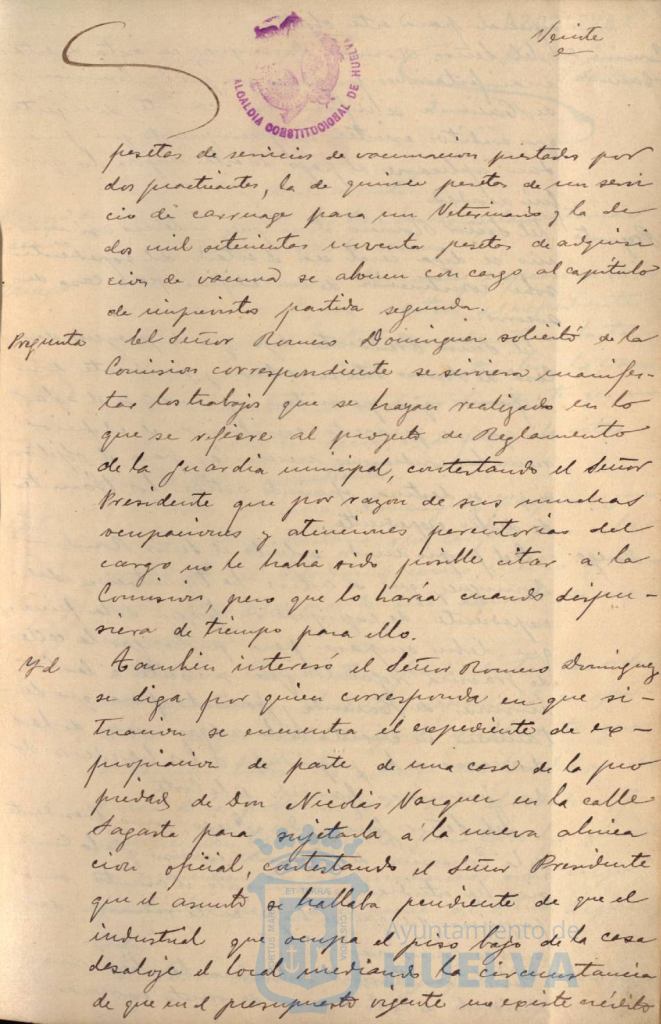 Veinte
ALCALDIA CONSTITUCIONAL DE HUELVA
pesetas de servicios de vacunacion prestados por
dos practicantes, la de quince pesetas de un servi
cio de carruage para un Veterinario y la de
dos mil setecientas noventa pesetas de adquisi
cion de vacuna se abonen con cargo al capítulo
de imprevistos partida segunda.
Pregunta El Señor Romero Dominguez solicitó de la
Comision correspondiente se sirviera manifes-
tar los trabajos que se hayan realizado en lo
que se refiere al proyecto de Reglamento
de la guardia municipal, contestando el Señor
Presidente que por razon de sus muchas
ocupaciones y atenciones perentorias del
cargo no le había sido posible citar á la
Comision, pero que lo haría cuando dispu-
siera de tiempo para ello.
Yd Tambien interesó el Señor Romero Dominguez
se diga por quien corresponda en que si-
tuacion se encuentra el expediente de ex-
propiacion de parte de una casa de la pro
piedad de Don Nicolás Vazquez en la calle
Sagasta para sujetarla á la nueva alinea
cion oficial, contestando el Señor Presidente
que el asunto se hallaba pendiente de que el
industrial que ocupa el piso bajo de la casa
desaloje el local mediando la circunstancia
de que en el presupuesto vigente no existe crédito
Ayuntamiento de
HUELVA